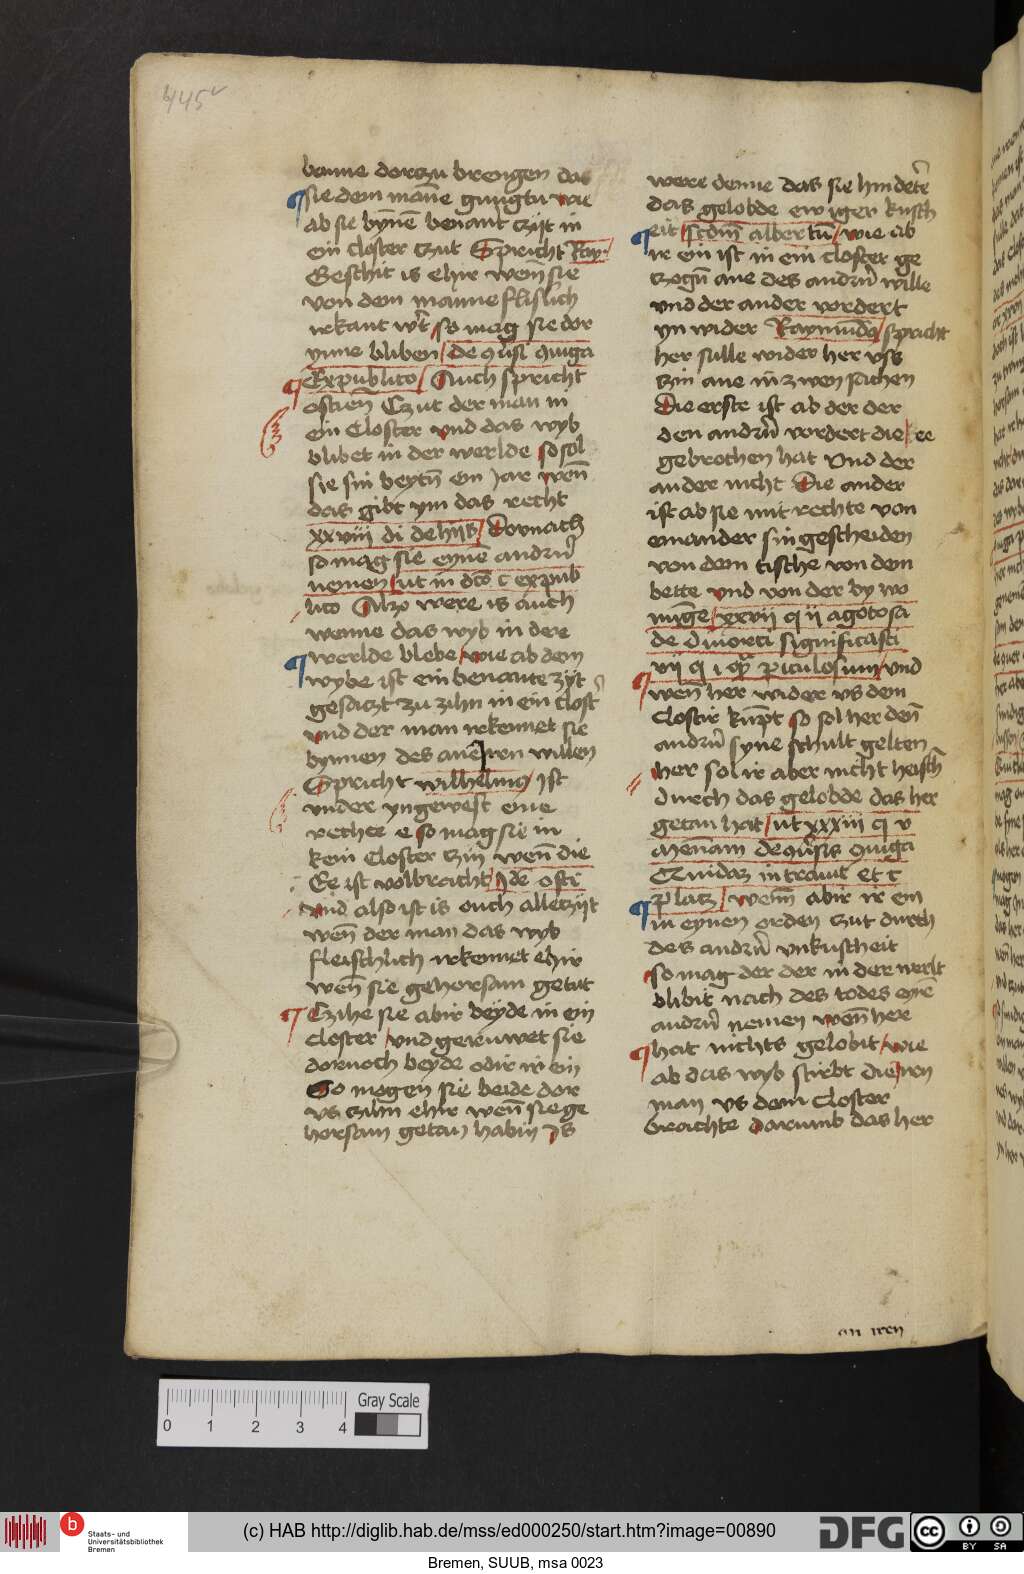 445v
benne dorczu brengen das
sie dem māne gnugtu wie
ab sie bynnē benant czijt in
ein closter czut Spricht Ray.
Geschit is ehir wen̄ sie
von dem manne flislich
irkant wirt so mag sie dor
ynne bliben de
Expublico Auch spricht
ostien Czut der man in
ein Closter vnd das wyb
blibet in der werlde so sol
sie sin beytn̄ ein Jar wen̄
das gibt ym das recht
xxviij di dehijs Dornach
so mag sie eynē andern̄
nemen ut in c expub
lico Alzo were is auch
wenne das wyb in dere
werlde blebe wie ab dem
wybe ist ein benante zijt
gesaczt zu zihn in ein clost
vnd der man irkennet sie
bynnen des ane iren willen
Spricht wilhelmus Ist
vnder yn gewest eine
rechte e so mag sie in
kein Closter czin wen̄ die
Ee ist volbracht Idē osti
vnd also ist is ouch alleczijt
wen̄ der man das wyb
fleischlich irkennet ehir
wen̄ sie gehorsam getut
Czihe sie abir beyde in ein
closter vnd geruwet sie
dornoch beyde odir ir ein
So mogen sie beide dor
vs czihn ehir wen̄ sie ge
horsam getan habin Is
were denne das sie hindete
das gelobde ewiger kusch
eit albertū wie ab
ir ein ist in ein closter ge
czogn̄ ane des andern̄ wille
vnd der ander vordert
yn wider Raymundus spricht
her sulle wider her vss
czin ane in zwen sachen
Die erste ist ab der der
den andern̄ vordert die ee
gebrochen hat Vnd der
ander nicht Die ander
ist ab sie mit rechte von
einander sin gescheiden
von dem tische von dem
bette vnd von der by wo
nuge xxvij q ij agotosa
de diuorci significasti
vij q i periculosum vnd
wen̄ her wider vs dem
Clostir kumpt so sol her den̄
andern̄ syne schult gelten
her sol ir aber nicht heisch
durch das gelobde das her
getan hat ut xxxiij q v
de
Quidaz intrauit et c
placz wenn abir ir ein
in eynen orden czut durch
des andern̄ vnkuscheit
so mag der der in der werlt
blibit nach des todes eynē
andern̄ nemen wen̄ here
hat nichts gelobit wie
ab das wyb stirbt die iren
man vs dem Closter
brachte darumb das her
an iren
0 1 2 3 4
Gray Scale
b
Staats- und
Universitätsbibliothek
Bremen
(c) HAB http://diglib.hab.de/mss/ed000250/start.htm?image=00890
DFG
cc BY SA
Bremen, SUUB, msa 0023